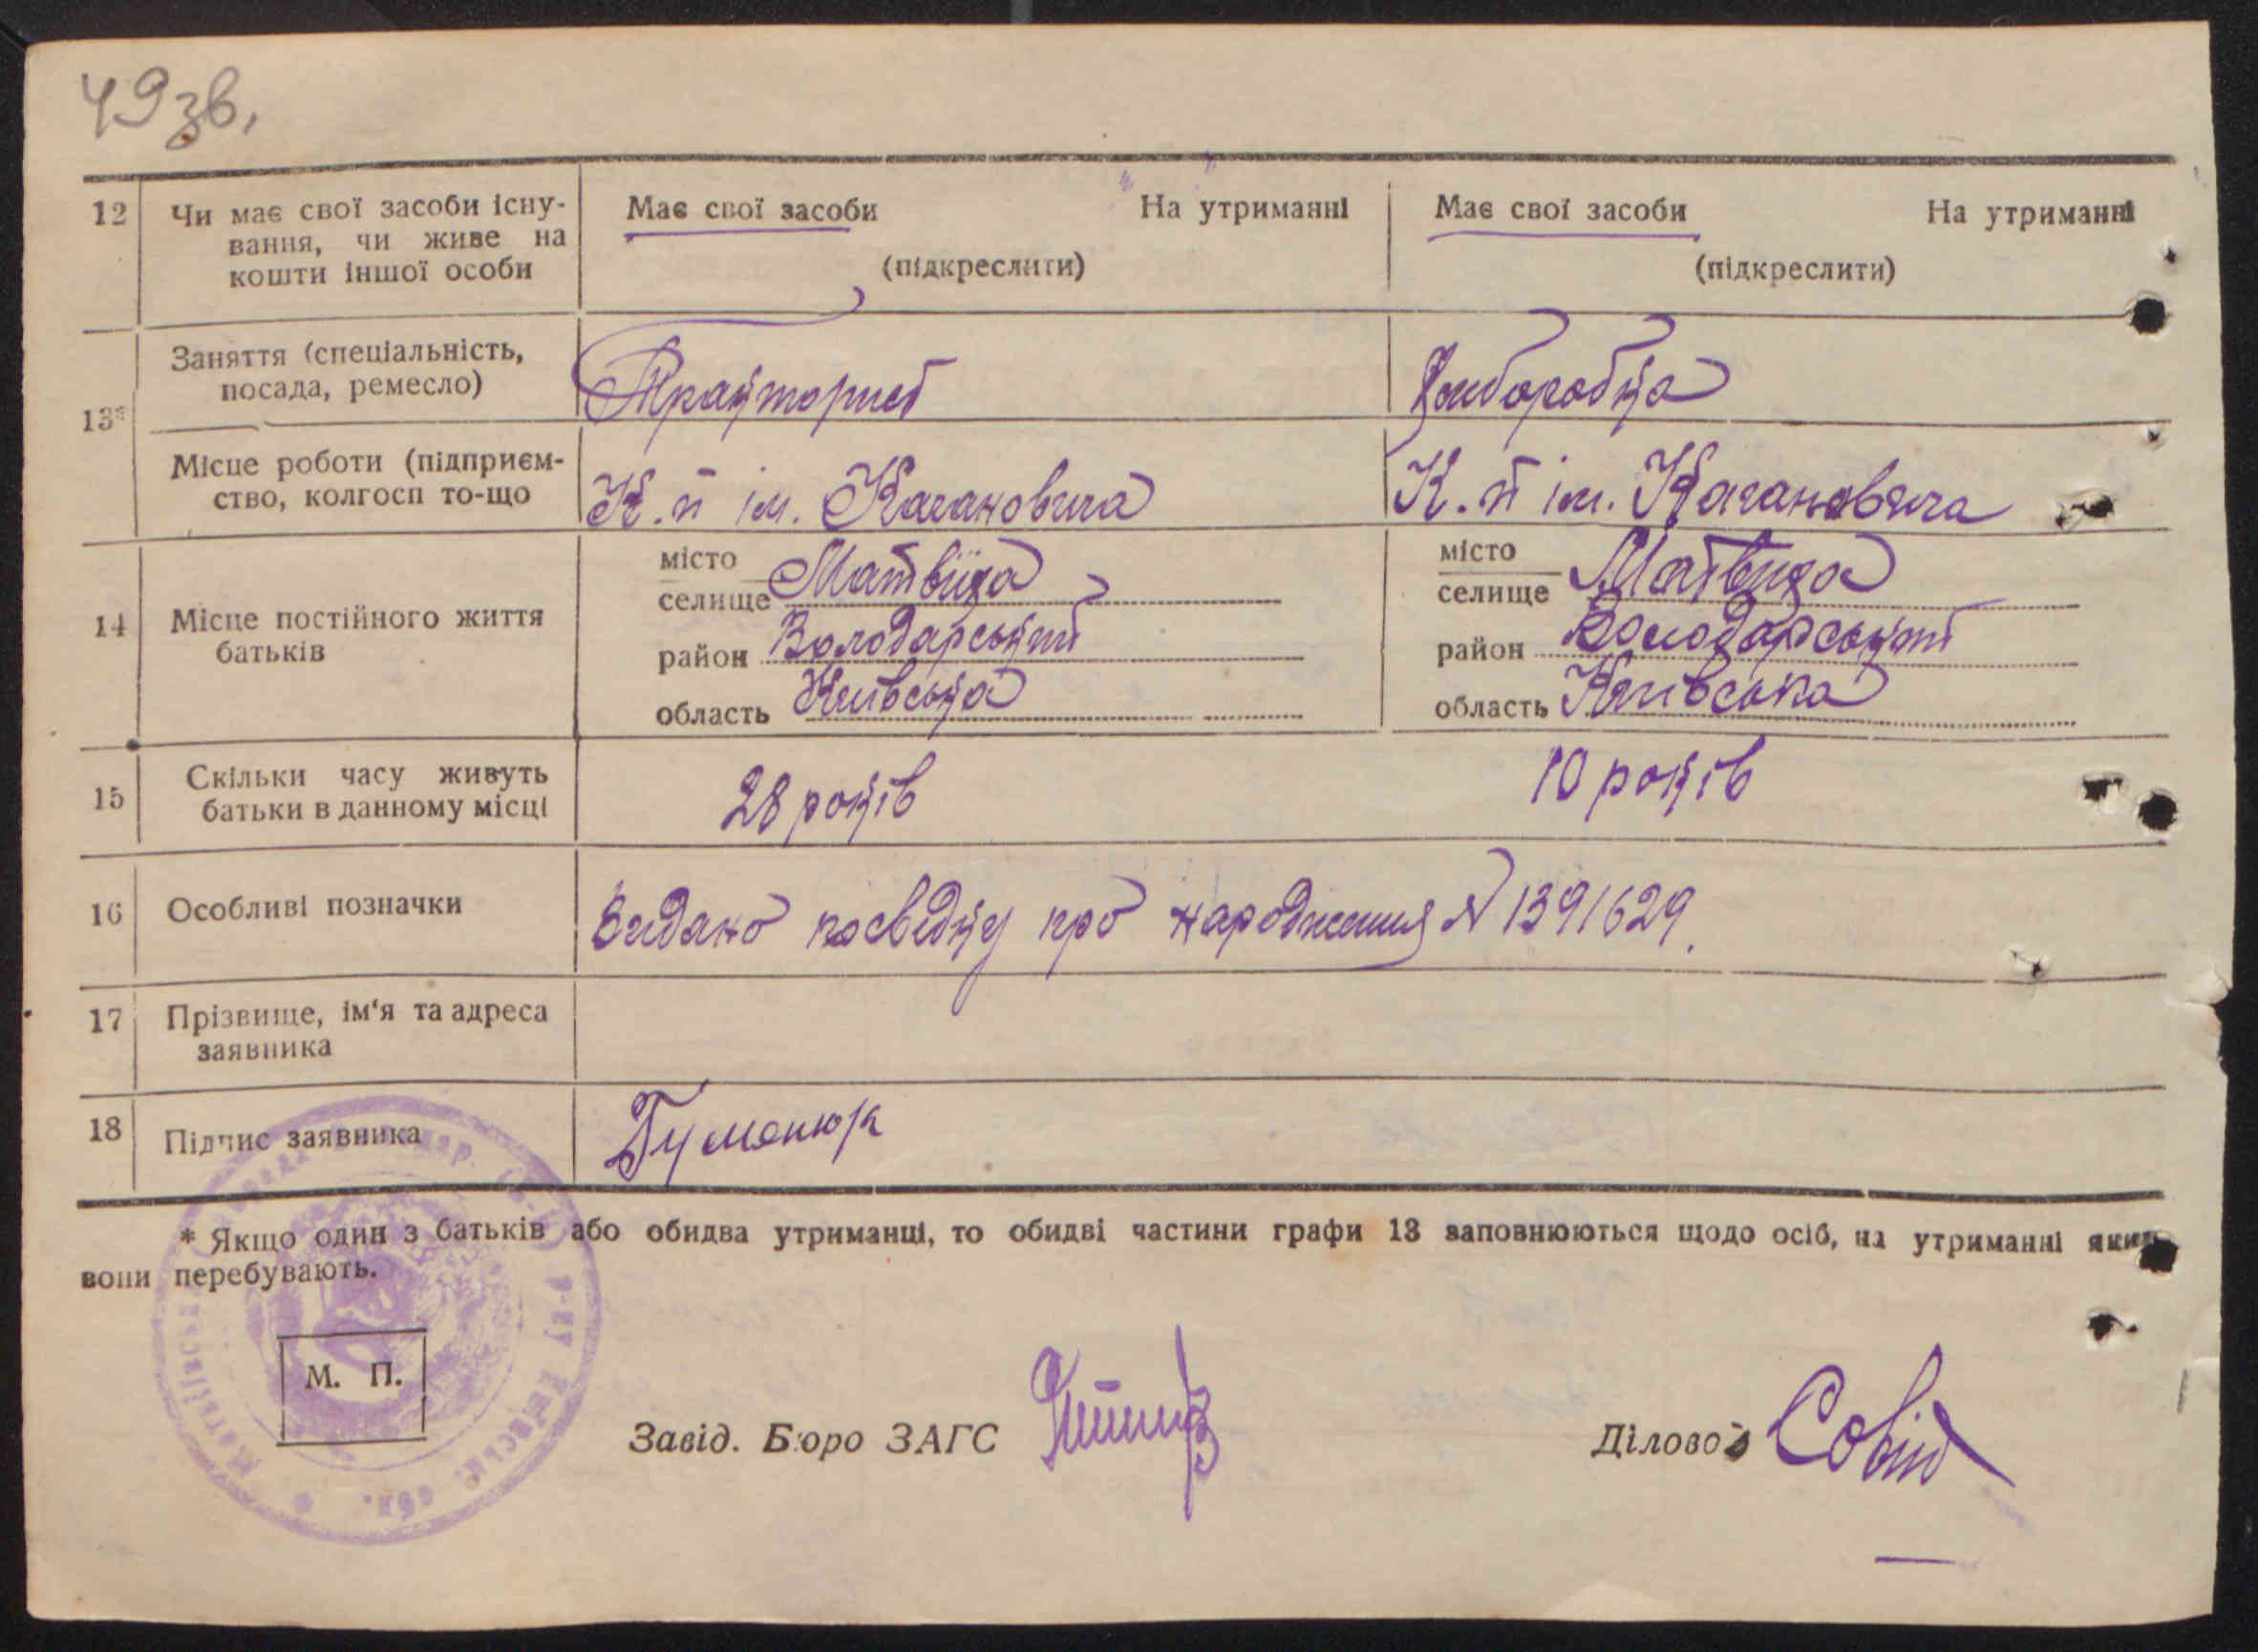 49зв.
12 Чи має свої засоби існу- Має свої засоби На утриманні Має свої засоби На утриманні
вання, чи живе на
кошти іншої особи (підкреслити) (підкреслити)
Заняття (спеціальність,
посада, ремесло) Тракторист Хліборобка
13*
Місце роботи (підприєм-
ство, колгосп то-що К.п ім. Кагановича К.п ім. Кагановича
місто місто
селище Матвіїха селище Матвиха
14 Місце постійного життя
батьків район Володарський район Володарський
область Київська область Київська
15 Скільки часу живуть
батьки в данному місці 28 років 10 років
16 Особливі позначки Видано посвідку про народження № 1391629.
17 Прізвище, ім'я та адреса
заявника
18 Підпис заявника Гуменюк
* Якщо один з батьків або обидва утриманці, то обидві частини графи 13 заповнюються щодо осіб, на утриманні яких
вони перебувають.
М. П.
Завід. Бюро ЗАГС Діловод
р-ну Київськ. обл.